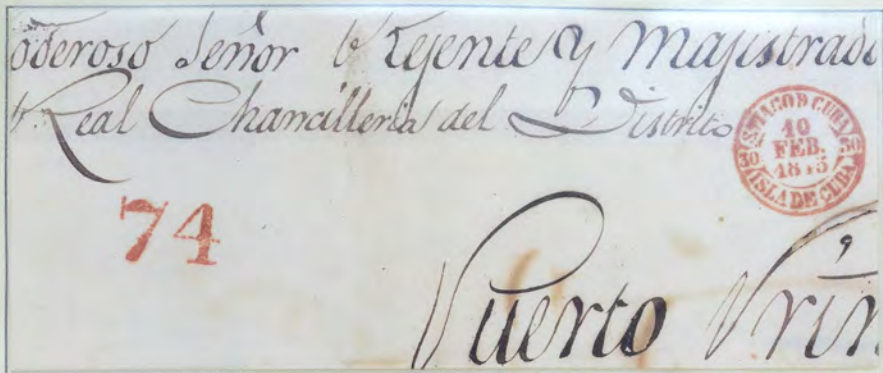 oderoso Señor Rejente y Majistrado
Real Chancilleria del Distrito
S. TIAGO D CUBA
10
FEB.
1845
30 30
ISLA DE CUBA
74
Puerto Prin